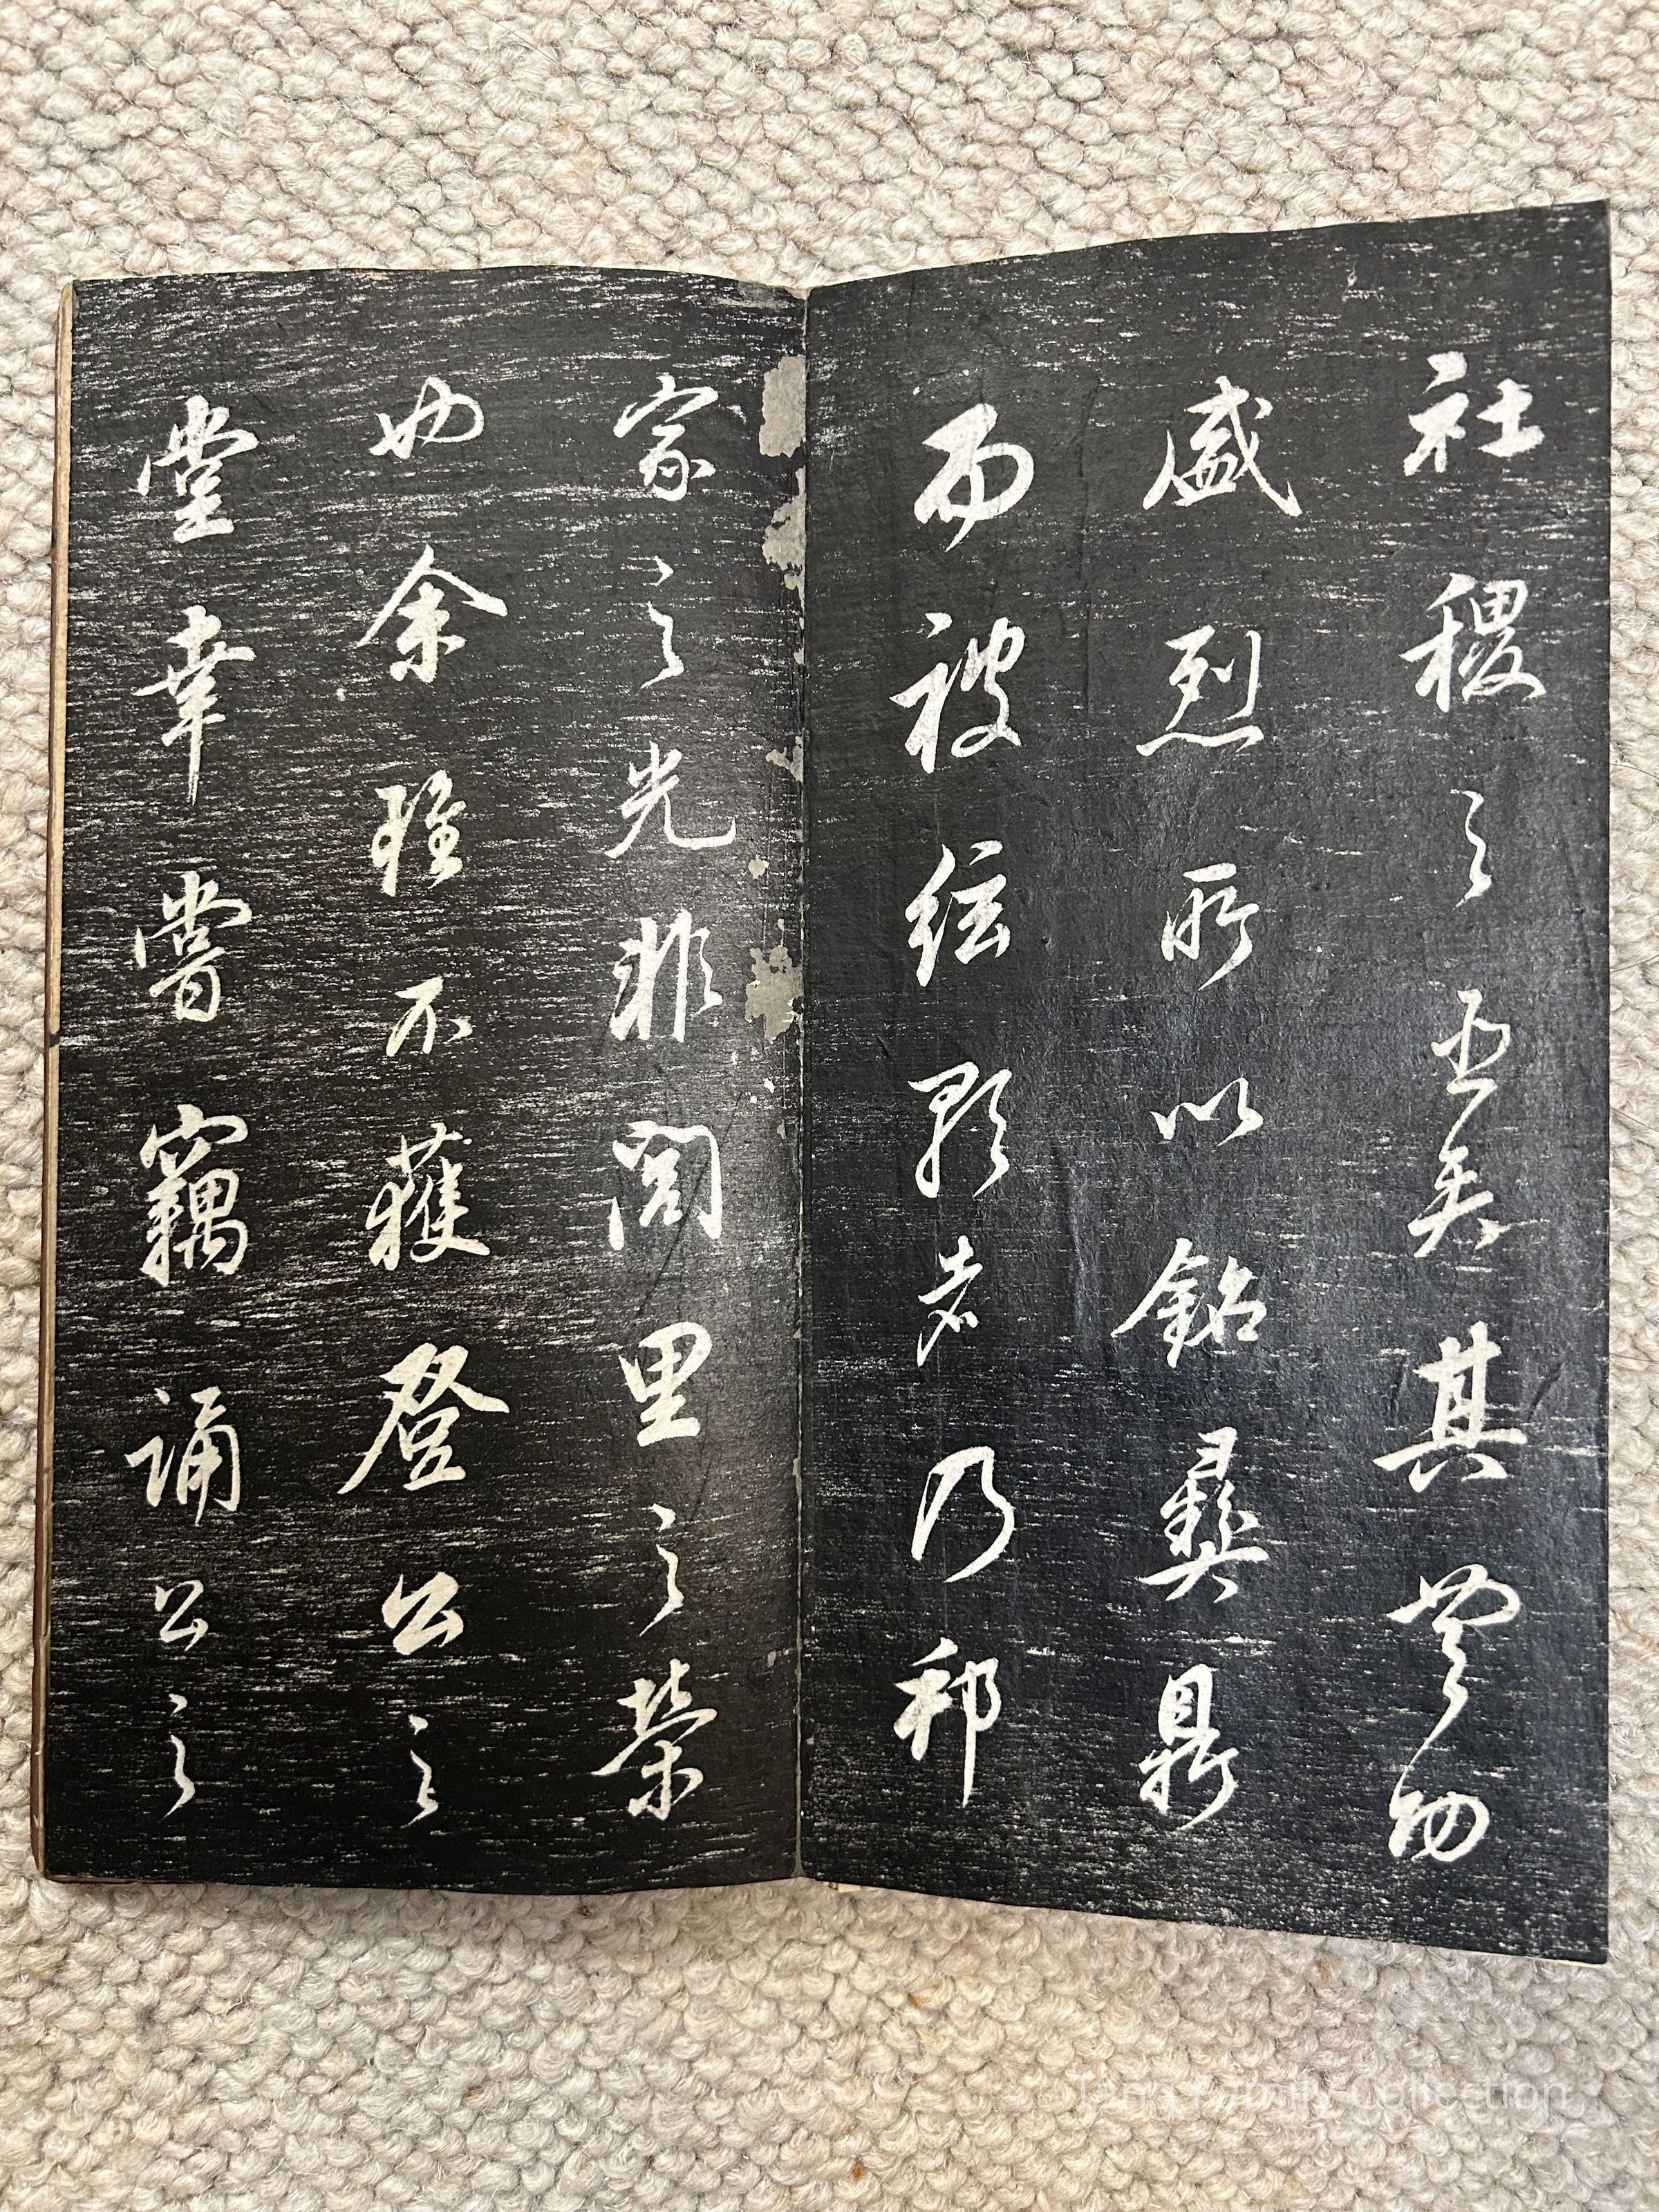 社稷之臣矣其豐功
盛烈所以銘彝鼎
而被絃歌者乃邦
家之光非閭里之榮
也余雖不獲登公之
堂幸嘗竊誦公之
Tang Family Collection